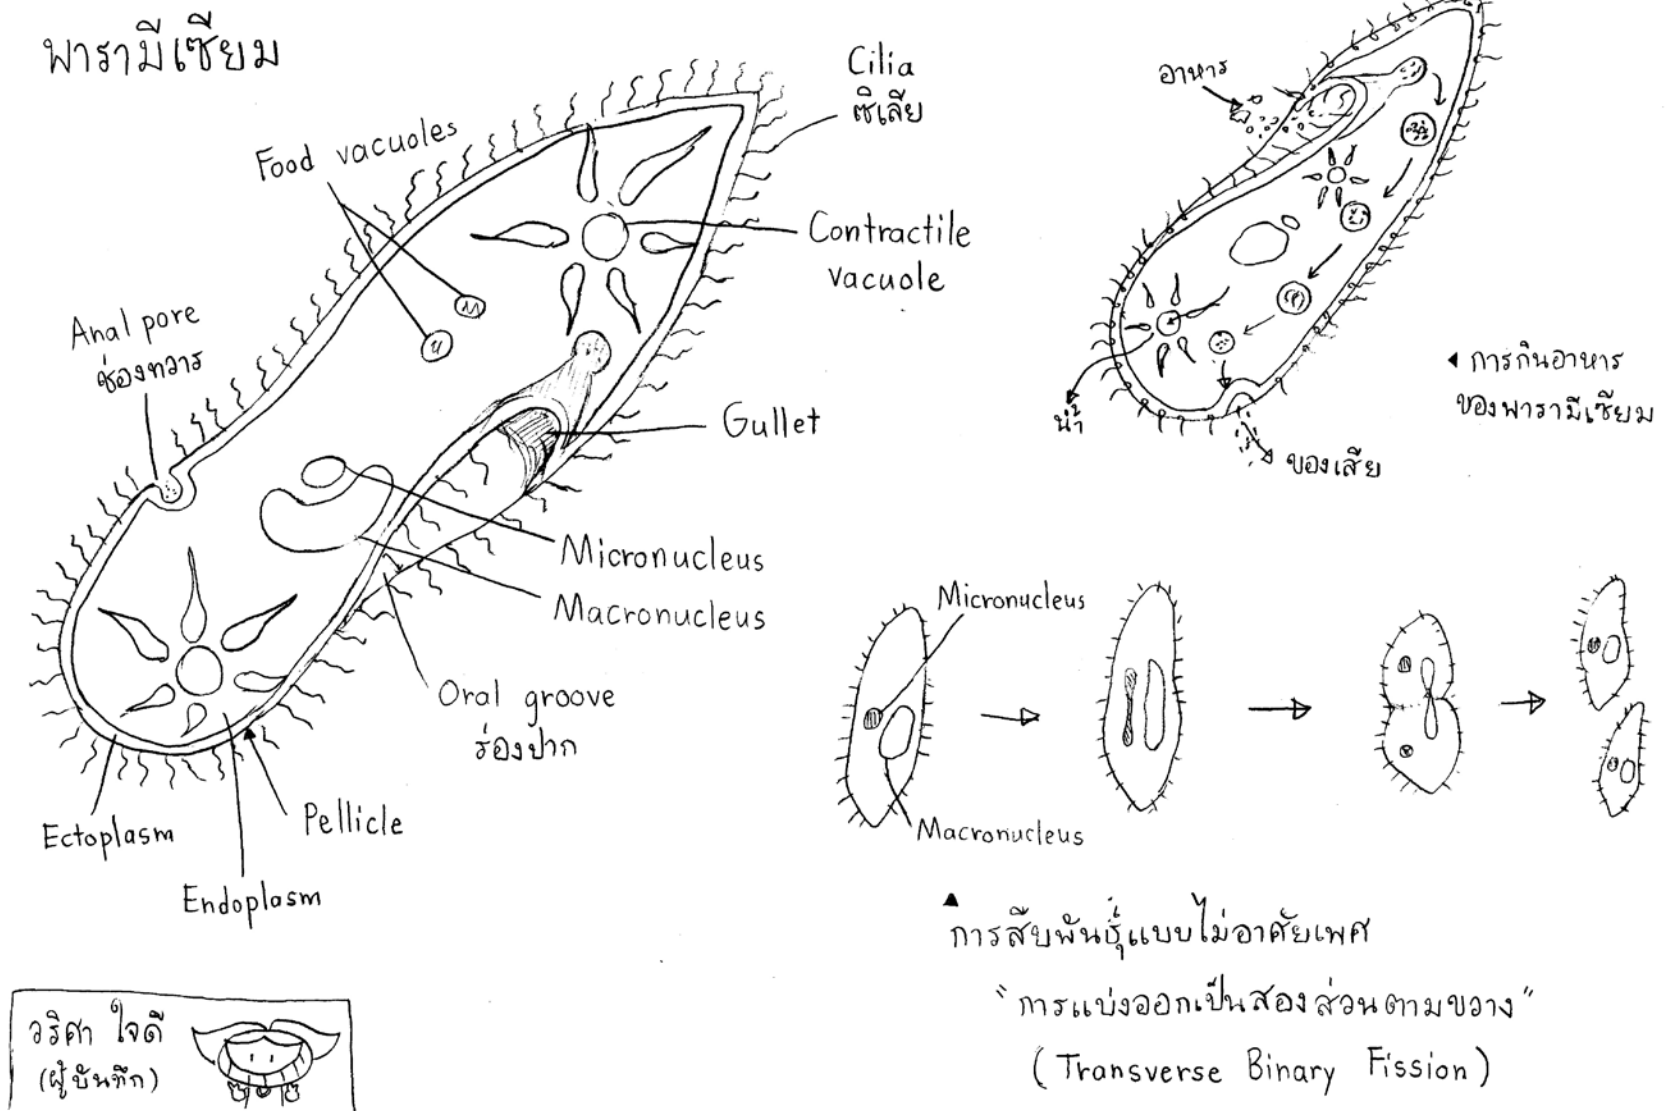 พารามีเซียม
Cilia
ซิเลีย
Food vacuoles
Contractile
vacuole
Anal pore
ช่องทวาร
Gullet
Micronucleus
Macronucleus
Oral groove
ร่องปาก
Pellicle
Ectoplasm
Endoplasm
อาหาร
น้ำ
ของเสีย
การกินอาหาร
ของพารามีเซียม
Micronucleus
Macronucleus
การสืบพันธุ์แบบไม่อาศัยเพศ
"การแบ่งออกเป็นสองส่วนตามขวาง"
(Transverse Binary Fission)
วริศา ใจดี
(ผู้บันทึก)